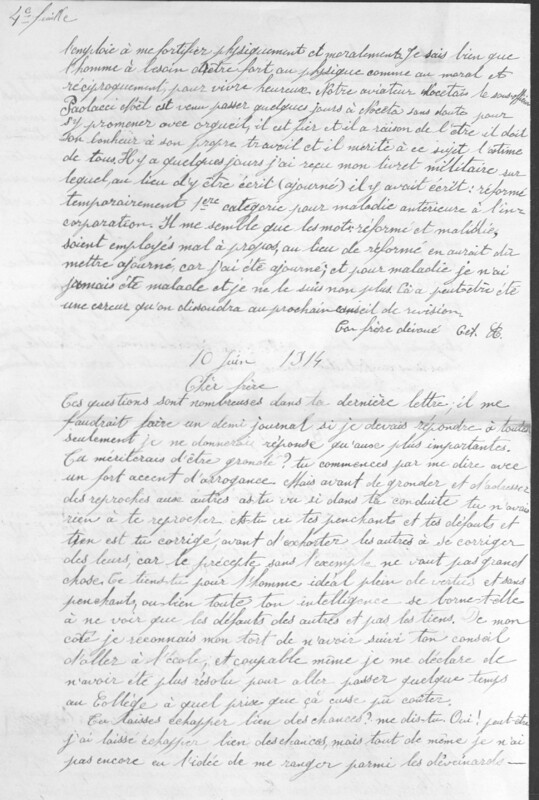 4e feuille
l'emploie à me fortifier physiquement et moralement. Je sais bien que
l'homme à besoin d'être fort, au physique comme au moral et
réciproquement, pour vivre heureux. Notre aviateur Nocetais le sous-officier
Paolacci Noël est venu passer quelques jours à Noceta sans doute pour
s'y promener avec orgueil, il est fier et il a raison de l'être il doit
son bonheur à son propre travail et il mérite à ce sujet l'estime
de tous. Il y a quelques jours j'ai reçu mon livret militaire sur
lequel, au lieu d'y être écrit (ajourné) il y avait écrit : réformé
temporairement 1ere catégorie pour maladie antérieure à l'in-
corporation. Il me semble que les mots réformé et maladie,
soient employés mal à propos, au lieu de réformé on aurait dû
mettre ajourné, car j'ai été ajourné; et pour maladie je n'ai
jamais été malade et je ne le suis non plus. Ça a peut-être été
une erreur qu'on dissoudra au prochain conseil de révision.
Ton frère dévoué
10 Juin 1914
Cher frère
Tes questions sont nombreuses dans ta dernière lettre; il me
faudrait faire un demi journal si je devais répondre à toutes
seulement je ne donnerai réponse qu'aux plus importantes.
Tu mériterais d'être grondé? tu commences par me dire avec
un fort accent d'arrogance. Mais avant de gronder et d'adresser
des reproches aux autres as-tu vu si dans ta conduite tu n'avais
rien à te reprocher. As-tu vu tes penchants et tes défauts et
t'en es tu corrigé, avant d'exhorter les autres à se corriger
des leurs, car le précepte sans l'exemple ne vaut pas grand
chose. Te tiens-tu pour l'homme idéal plein de vertus et sans
penchant, ou-bien toute ton intelligence se borne-t-elle
à ne voir que les défauts des autres et pas les tiens. De mon
côté je reconnais mon tort de n'avoir suivi ton conseil
d'aller à l'école; et coupable même je me déclare de
n'avoir été plus résolu pour aller passer quelque temps
au Collège à quel prix que ça eusse pû coûter.
Tu laisses échapper bien des chances? me dis-tu. Oui! peut-être
j'ai laissé échapper bien des chances, mais tout de même je n'ai
pas encore eu l'idée de me ranger parmi les déveinards —